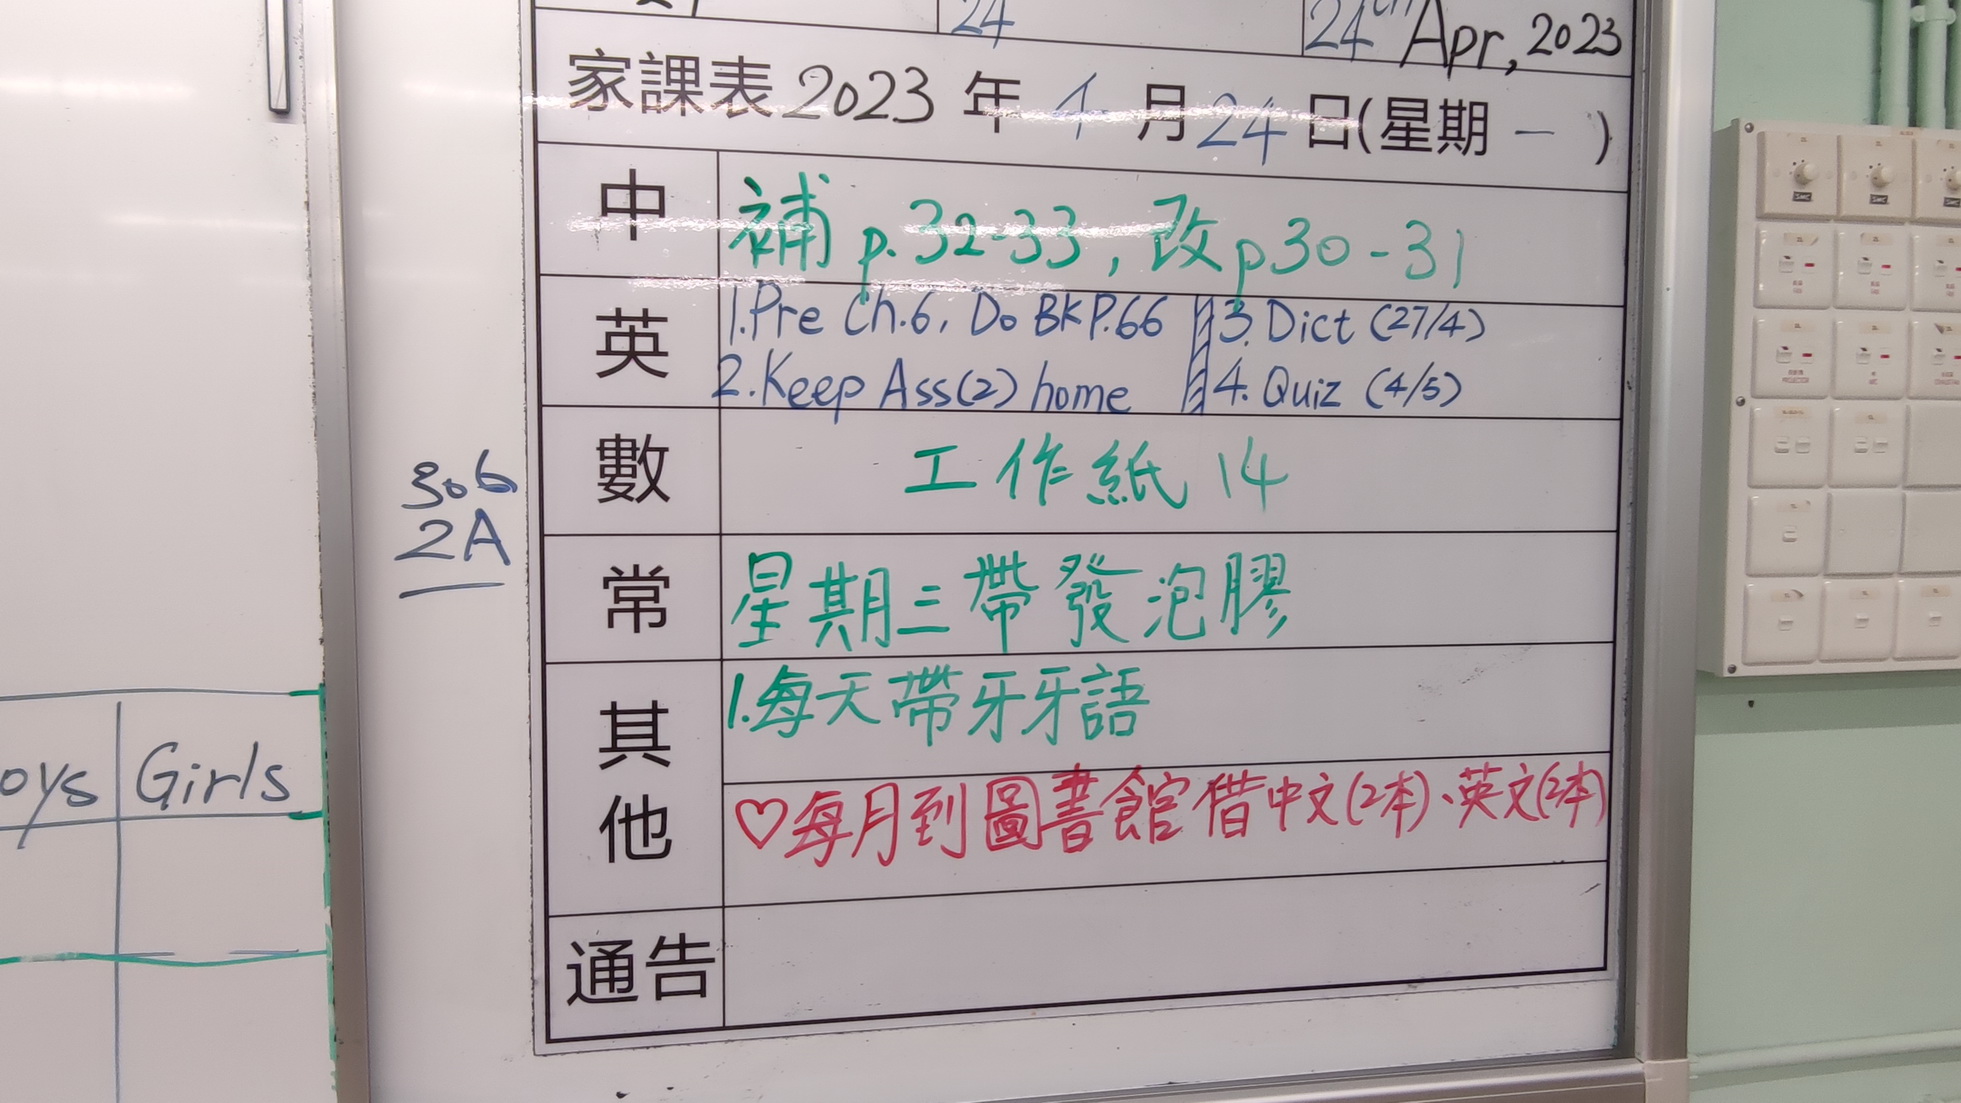 24
24th Apr, 2023
家課表 2023 年 4 月 24 日(星期 一 )
中
補 p.32-33, 改 p30-31
英
1.Pre Ch.6, Do BK P.66
3. Dict (27/4)
2.Keep Ass(2) home
4. Quiz (4/5)
數
工作紙 14
常
星期三帶發泡膠
其他
1.每天帶牙牙語
♡每月到圖書館借中文(2本)、英文(2本)
通告
306
2A
oys
Girls